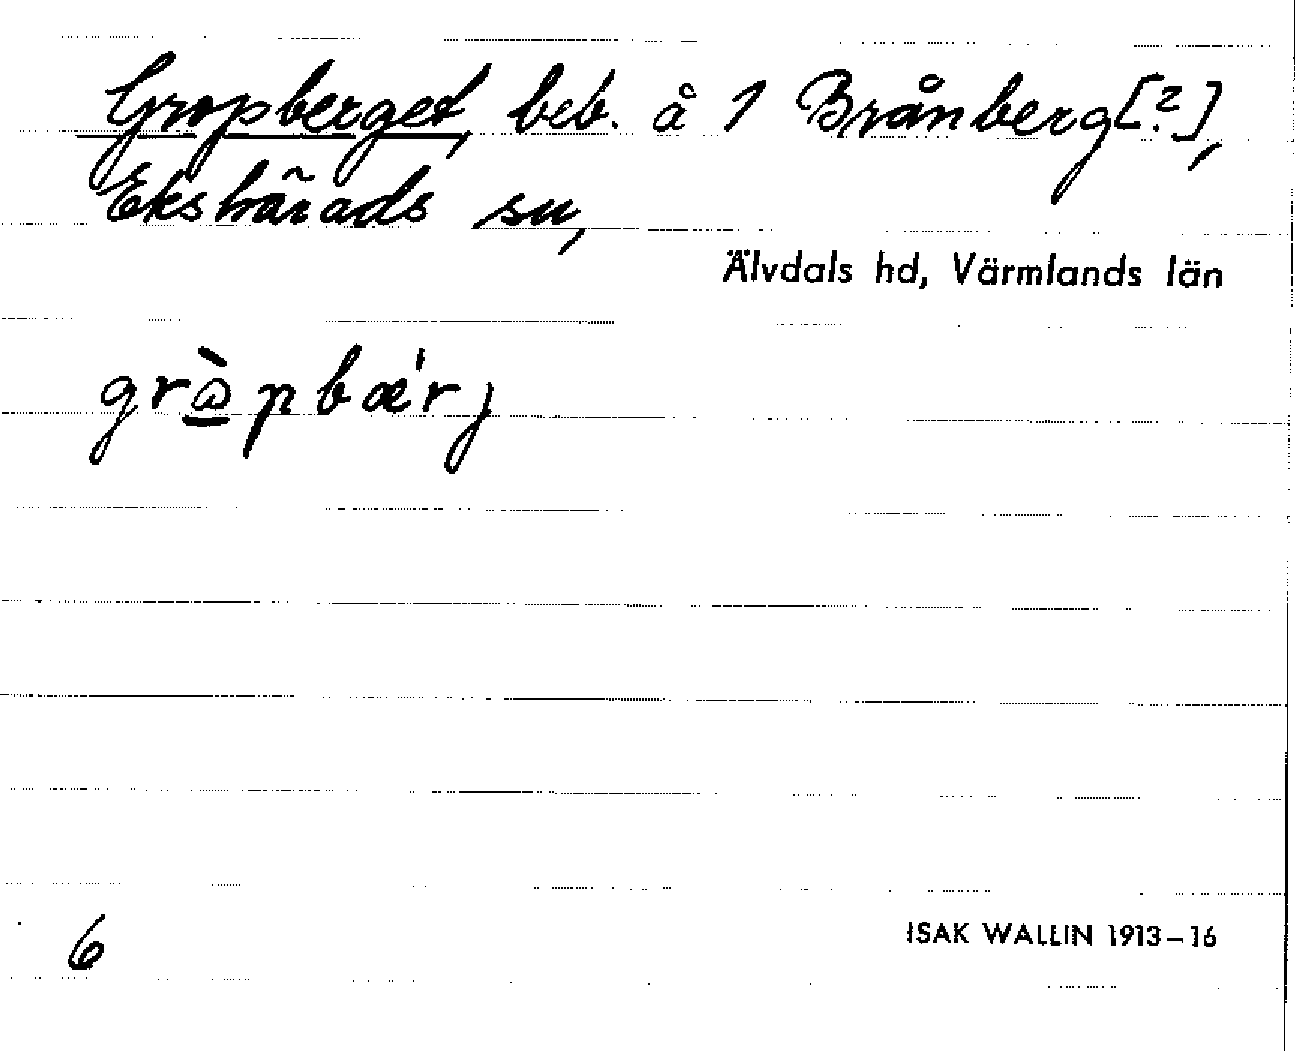 Gropberget, beb. å 1 Brånberg[?],
Ekshärads sn,
Älvdals hd, Värmlands län
grὼpbæ'rj
6
ISAK WALLIN 1913–16